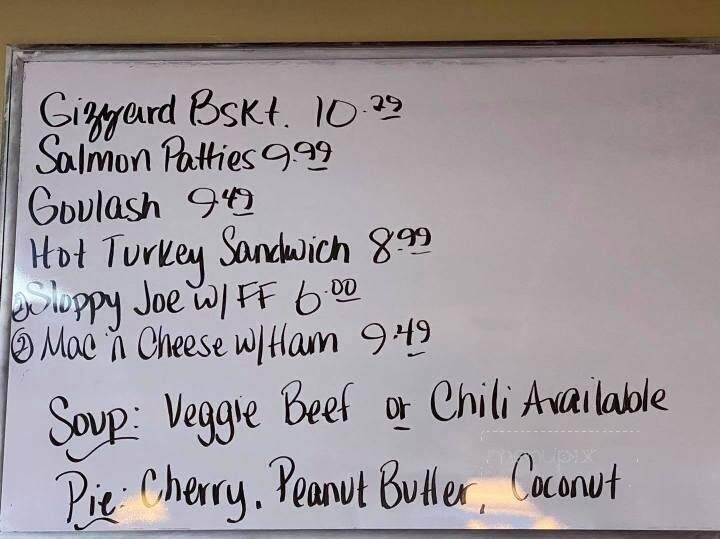 Gizzard Bskt. 10.29
Salmon Patties 9.99
Goulash 9.49
Hot Turkey Sandwich 8.99
① Sloppy Joe w/ FF 6.00
② Mac 'n Cheese w/Ham 9.49
Soup: Veggie Beef or Chili Available
menupix
Pie: Cherry, Peanut Butter, Coconut